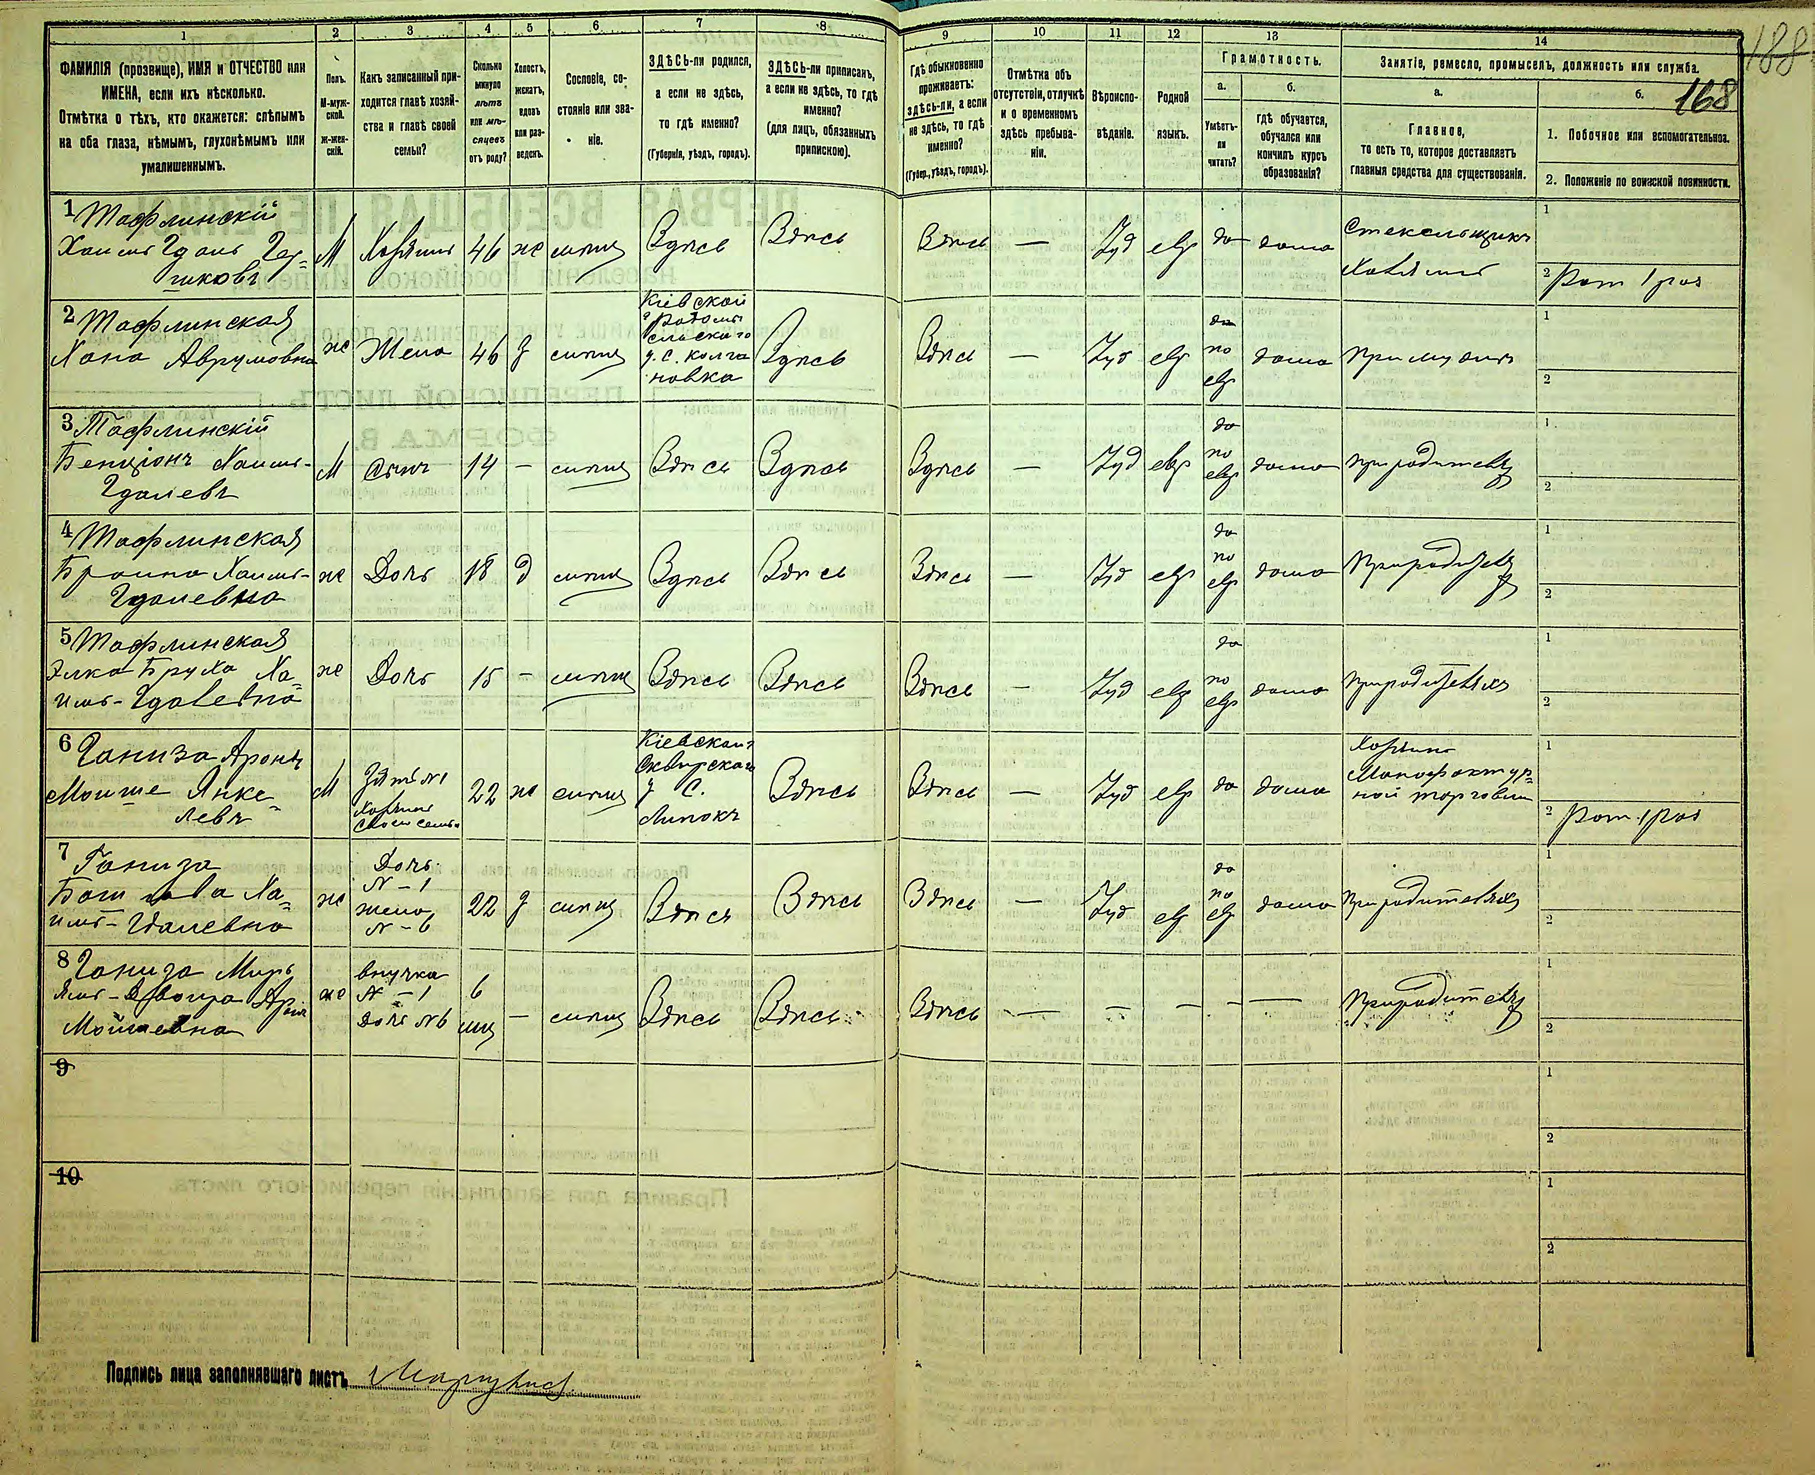 188
168
1
2
3
4
5
6
7
8
9
10
11
12
13
14
ФАМИЛІЯ (прозвище), ИМЯ и ОТЧЕСТВО или
ИМЕНА, если ихъ нѣсколько.
Отмѣтка о тѣхъ, кто окажется: слѣпымъ
на оба глаза, нѣмымъ, глухонѣмымъ или
умалишеннымъ.
Полъ.
М-муж-
ской.
Ж-жен-
скій.
Какъ записанный при-
ходится главѣ хозяй-
ства и главѣ своей
семьи?
Сколько
минуло
лѣтъ
или мѣ-
сяцевъ
отъ роду?
Холостъ,
женатъ,
вдовъ
или раз-
веденъ.
Сословіе, со-
стояніе или зва-
ніе.
ЗДѢСЬ-ли родился,
а если не здѣсь,
то гдѣ именно?
(Губернія, уѣздъ, городъ).
ЗДѢСЬ-ли приписанъ,
а если не здѣсь, то гдѣ
именно?
(для лицъ, обязанныхъ
припискою).
Гдѣ обыкновенно
проживаетъ:
здѣсь-ли, а если
не здѣсь, то гдѣ
именно?
(Губер., уѣздъ, городъ).
Отмѣтка объ
отсутствіи, отлучкѣ
и о временномъ
здѣсь пребыва-
ніи.
Вѣроиспо-
вѣданіе.
Родной
языкъ.
Грамотность.
а.
Умѣетъ-
ли
читать?
б.
гдѣ обучается,
обучался или
кончилъ курсъ
образованія?
Занятіе, ремесло, промыселъ, должность или служба.
а.
Главное,
то есть то, которое доставляетъ
главныя средства для существованія.
б.
1. Побочное или вспомогательное.
2. Положеніе по воинской повинности.
1 Тафлинскій
Хаимъ Гдаль Гер=
шковъ
М
Хозяинъ
46
же
Здѣсь
Здѣсь
Здѣсь
—
Іуд
евр
да
дома
Стекольщикъ
Хозяинъ
1
2 Рат 1 раз
2 Тафлинская
Хана Аврумовна
же
Жена
46
Кіевской
Здѣсь
Здѣсь
—
Іуд
евр
да
по
евр
дома
при мужѣ
1
2
3 Тафлинскій
Бенціонъ Хаимъ-
Гдалевъ
М
Сынъ
14
—
Здѣсь
Здѣсь
Здѣсь
—
Іуд
евр
да
по
евр
дома
при родителяхъ
1
2
4 Тафлинская
Браина Хаимъ-
Гдалевна
же
Дочь
18
д
Здѣсь
Здѣсь
Здѣсь
—
Іуд
евр
да
по
евр
дома
при родителяхъ
1
2
5 Тафлинская
Элка Бруха Ха=
имъ-Гдалевна
же
Дочь
15
—
Здѣсь
Здѣсь
Здѣсь
—
Іуд
евр
да
по
евр
дома
при родителяхъ
1
2
6 Ганиза Аронъ
Мойше Янке=
левъ
М
Зять №1
Хозяинъ
своей семьи
22
же
Кіевской
Сквирскаго
у. С.
Липокъ
Здѣсь
Здѣсь
—
Іуд
евр
да
дома
Хозяинъ
Мануфактур=
ной торговли
1
2 Рат 1 раз
7 Ганиза
Ха=
имъ-Гдалевна
же
Дочь
№ – 1
жена
№ – 6
22
Здѣсь
Здѣсь
Здѣсь
—
Іуд
евр
да
по
евр
дома
при родителяхъ
1
2
8 Ганиза
Мойшевна
же
внучка
№ – 1
дочь №6
6
—
Здѣсь
Здѣсь
Здѣсь
—
—
—
—
—
при родителяхъ
1
2
9
1
2
10
1
2
Подпись лица заполнявшаго листъ